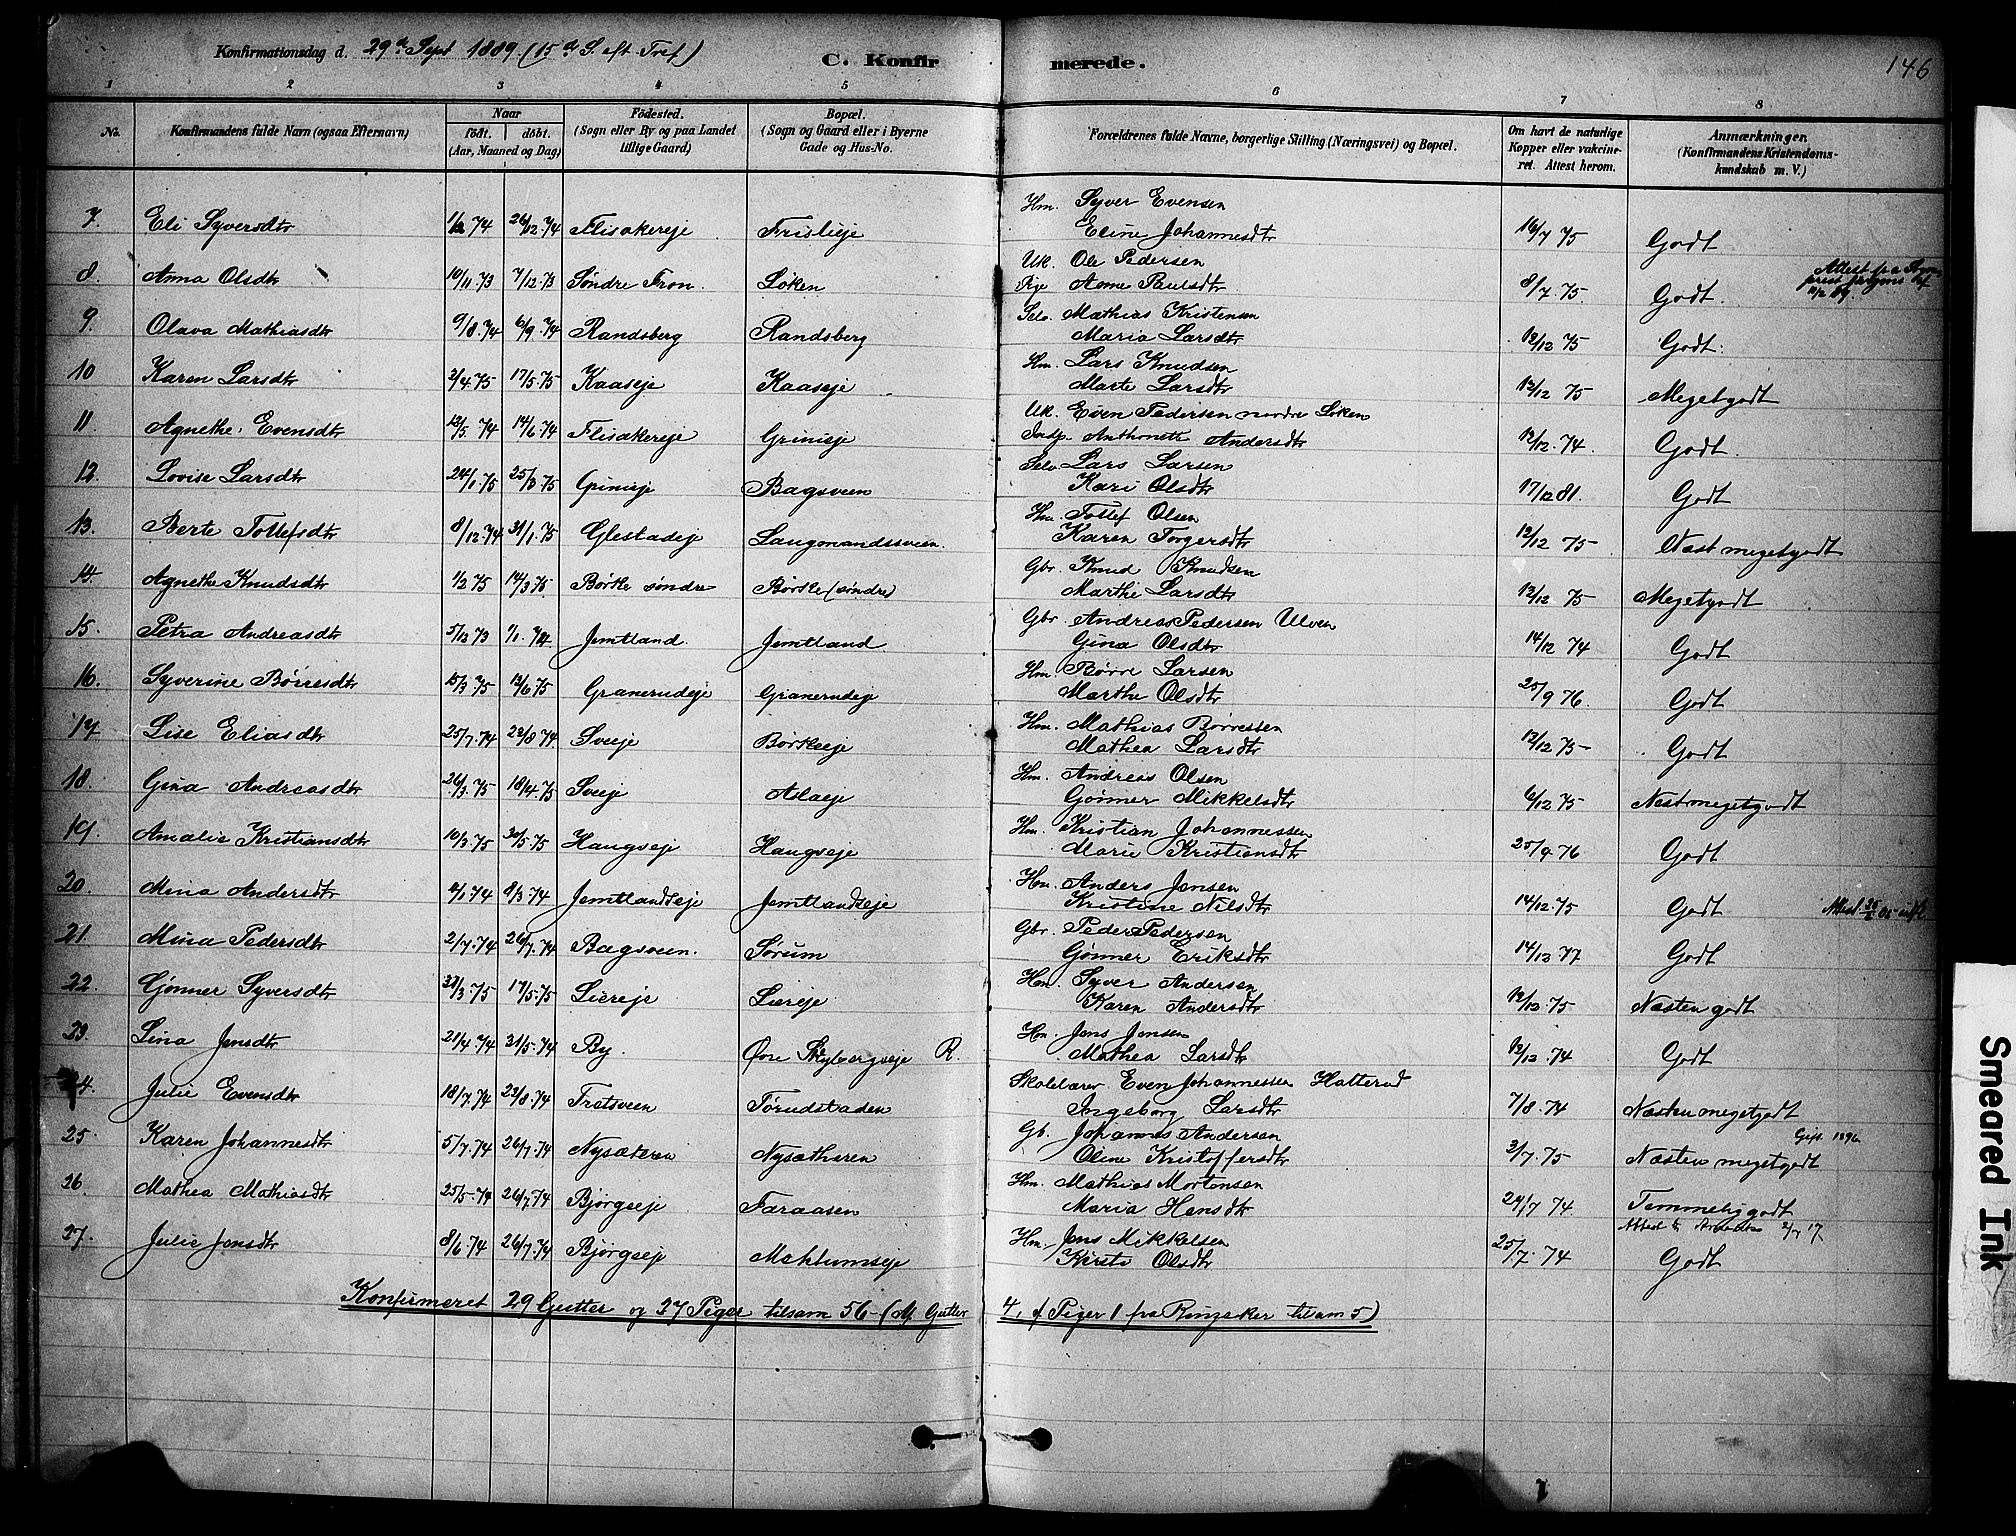 Konfirmationsdag d. 29de Sept 1889. (15de S. eft. Tref)
C. Konfirmerede.
146
1 2 3 4 5 6 7 8
No. Konfirmandens fulde Navn (ogsaa Efternavn) Naar født. døbt. (Aar, Maaned og Dag) Fødested. (Sogn eller By og paa Landet tillige Gaard) Bopæl. (Sogn og Gaard eller i Byerne Gade og Hus-No. Forældrenes fulde Navne, borgerlige Stilling (Næringsvei) og Bopæl. Om havt de naturlige Kopper eller vakcineret. Attest herom. Anmærkninger. (Konfirmandens Kristendomskundskab m. V.)
7. Eli Syversdtr 26/12.74 Flisakereje Frislieje Hm. Syver Evensen
Eline Johannesdtr 16/7 75 Godt
8. Anna Olsdtr 10/11 73 7/12.73 Søndre Fron Løken Uk. Ole Pedersen
Pige Anne Paulsdtr 8/7.75. Godt.
9. Olava Mathiasdtr 9/8.74 6/9.74 Randsberg Randsberg Selv. Mathias Kristensen
Maria Larsdtr 12/12 75 Godt.
10 Karen Larsdtr 2/4.75 17/5.75 Kaaseje Kaaseje Hm. Lars Knudsen
Marte Larsdtr 12/12 75 Megetgodt
11. Agnethe Evensdtr 12/5.74 14/6.74 Flisakereje Grinieje Uk. Even Pedersen nordre Løken
Indp. Anthonette Andersdtr 12/12.74. Godt.
12. Lovise Larsdtr 24/1.75 25/3.75 Grinieje Bagsveen Selv. Lars Larsen
Kari Olsdtr 17/12 81. Godt
13. Berte Tollefsdtr 8/12.74 31/1.75 Glestadeje Laugmandssveen. Hm. Tollef Olsen
Karen Torgersdtr 12/12 75 Næst megetgodt
14. Agnethe Knudsdtr 1/2 75 14/3 75. Børke søndre Børke (søndre) Gbr. Knud Knudsen
Marthe Larsdtr 12/12 75 Megetgodt
15. Petra Andreasdtr 5/12 73 1/1.74 Jemtland. Jemtland Gbr. Andreas Pedersen Ulven
Gina Olsdtr 14/12 74 Godt
16. Syverine Børresdtr 15/3 75 13/6 75 Granerudeje Granerudeje Hm. Børre Larsen
Marthe Olsdtr 25/9 76. Godt
17. Lise Eliasdtr 25/7.74 22/8 74 Sveeje Børkeeje Hm. Mathias Børresen
Mathea Larsdtr 12/12.75 Godt
18. Gina Andreasdtr 26/3.75 18/4.75 Sveeje Aslaeje Hm. Andreas Olsen
Gønner Mikkelsdtr 6/12 75 Næst megetgodt
19. Amalie Kristiansdtr 10/3.75 30/5.75 Haugseje Haugseje Hm. Kristian Johannessen
Marie Kristiansdtr 25/9.76 Godt
20. Mina Andersdtr 2/1.74 8/3.74 Jemtlandseje Jemtlandseje Hm. Anders Jensen
Kristine Nilsdtr 14/12.75 Godt
21. Mina Pedersdtr 2/7.74 26/7.74 Bagsveen. Sørum Gbr. Peder Pedersen
Gønner Eriksdtr 14/12 77 Godt
22. Gønner Syversdtr 17/5.75 Liereje Liereje Hm. Syver Andersen
Karen Andersdtr 12/12 75 Næsten godt
23. Lina Jensdtr 21/4.74 31/5.74 By. Øvre Skybergseje R. Hm. Jens Jensen
Mathea Larsdtr 12/12.74 Godt
24. Julie Evensdtr 18/7.74 23/8.74 Tratsveen Tørudstaden Skolelærer Even Johannessen Hatterud
Ingeborg Larsdtr 7/8.74 Næsten megetgodt
25. Karen Johannesdtr 5/7.74 26/7.74 Nysæteren Nysætheren Gb. Johannes Andersen
Oline Kristoffersdtr 3/7.75 Næsten megetgodt Gift 1896
26. Mathea Mathiasdtr 25/5.74 26/7.74 Bjørgeeje Faraasen Hm. Mathias Mortensen
Maria Hansdtr 24/7 74. Temmelig godt
27. Julie Jensdtr 8/6.74 26/7.74 Bjørgeeje Mehlumseje Hm. Jens Mikkelsen
Kirsti Olsdtr 25/7.74 Godt
Konfirmeret 29 Gutter og 27 Piger tilsam 56 - (Af Gutter 4, af Piger 1 fra Ringsaker tilsam 5)
Smeared Ink